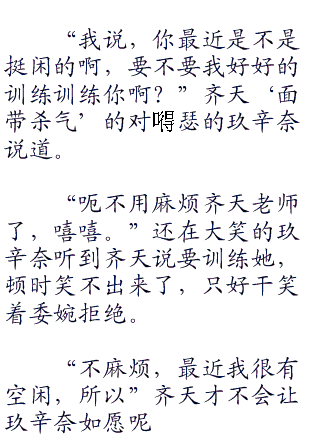 “我说，你最近是不是
挺闲的啊，要不要我好好的
训练训练你啊？”齐天‘面
带杀气’的对嘚瑟的玖辛奈
说道。
“呃不用麻烦齐天老师
了，嘻嘻。”还在大笑的玖
辛奈听到齐天说要训练她，
顿时笑不出来了，只好干笑
着委婉拒绝。
“不麻烦，最近我很有
空闲，所以”齐天才不会让
玖辛奈如愿呢